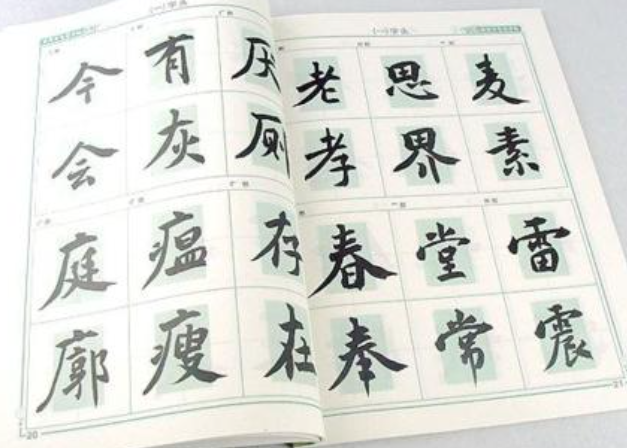 (一)字头
今 有 厌
会 灰 厕
庭 瘟 存
廓 瘦 在
20
(一)字头
老 思 麦
孝 界 素
春 堂 雷
奉 常 震
21